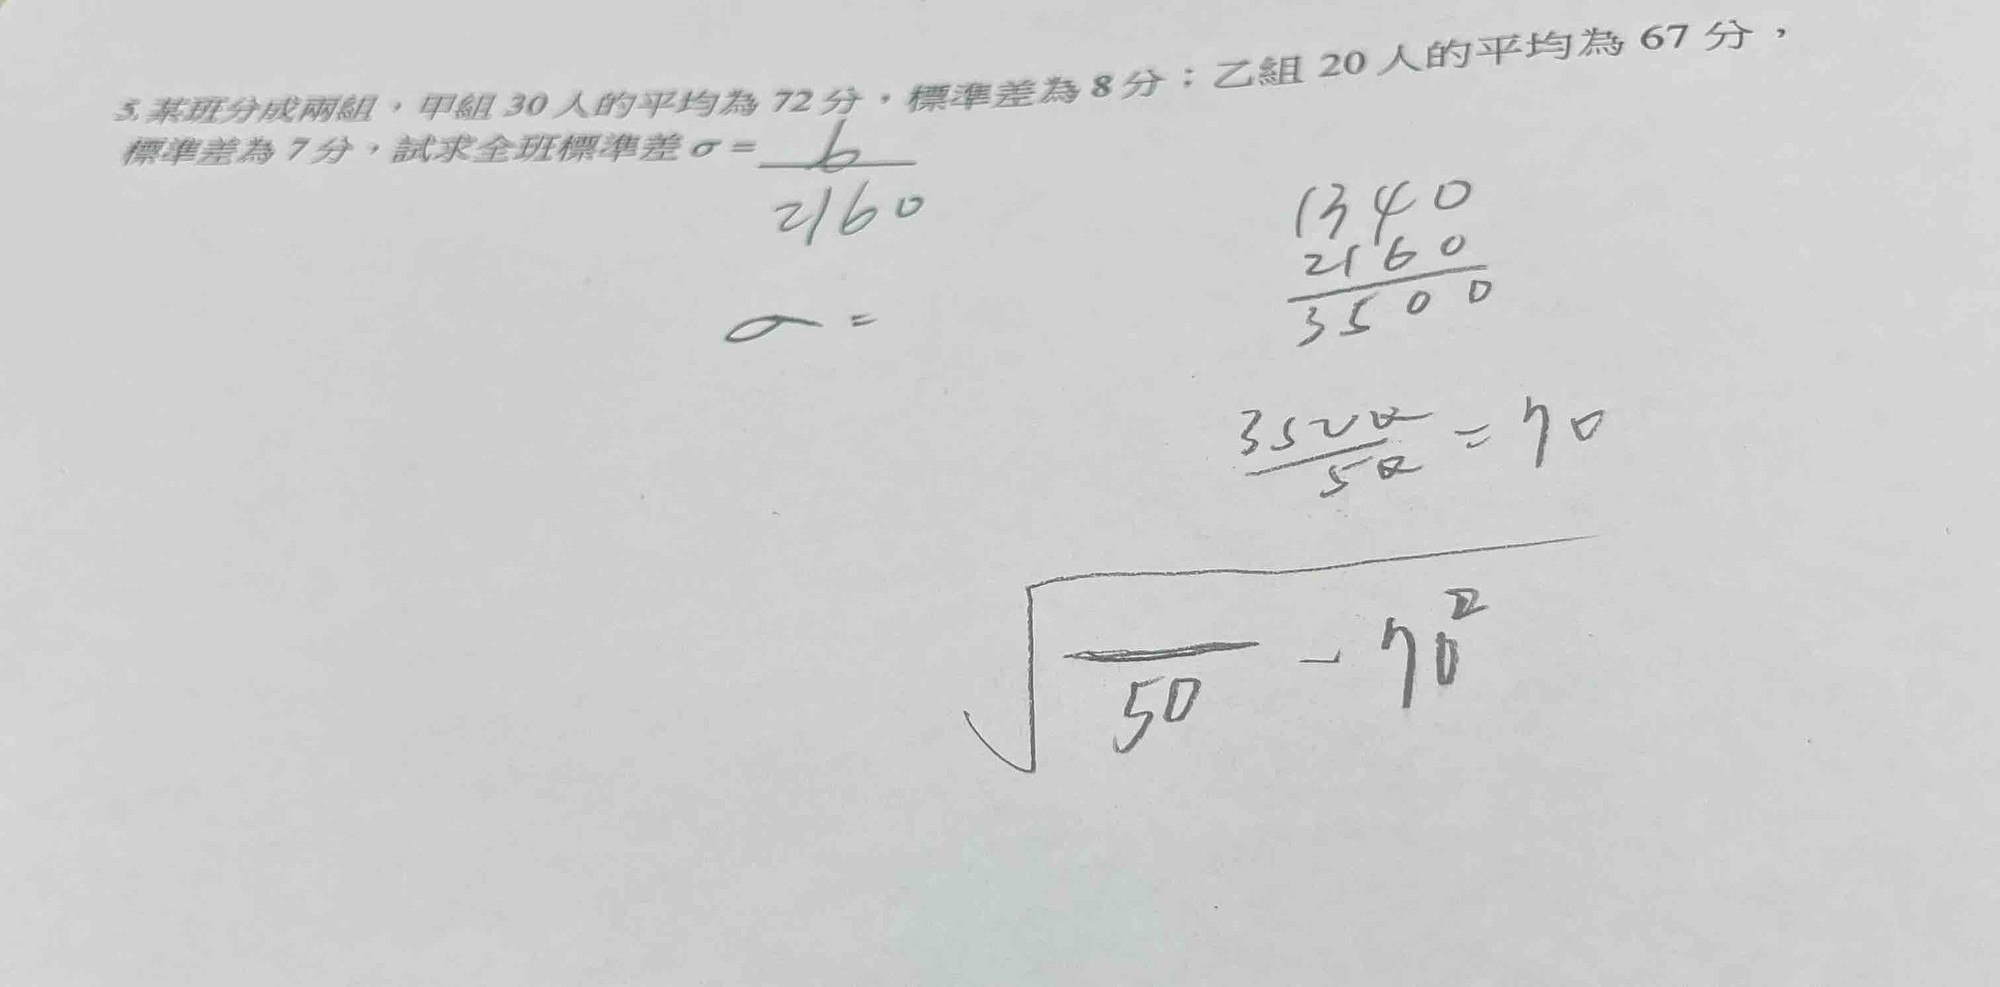 5. 某班分成兩組，甲組 30 人的平均為 72 分，標準差為 8 分；乙組 20 人的平均為 67 分，
標準差為 7 分，試求全班標準差 σ = 6
2160
σ =
1340
2160
3500
3500/50 = 70
√ /50 - 70²